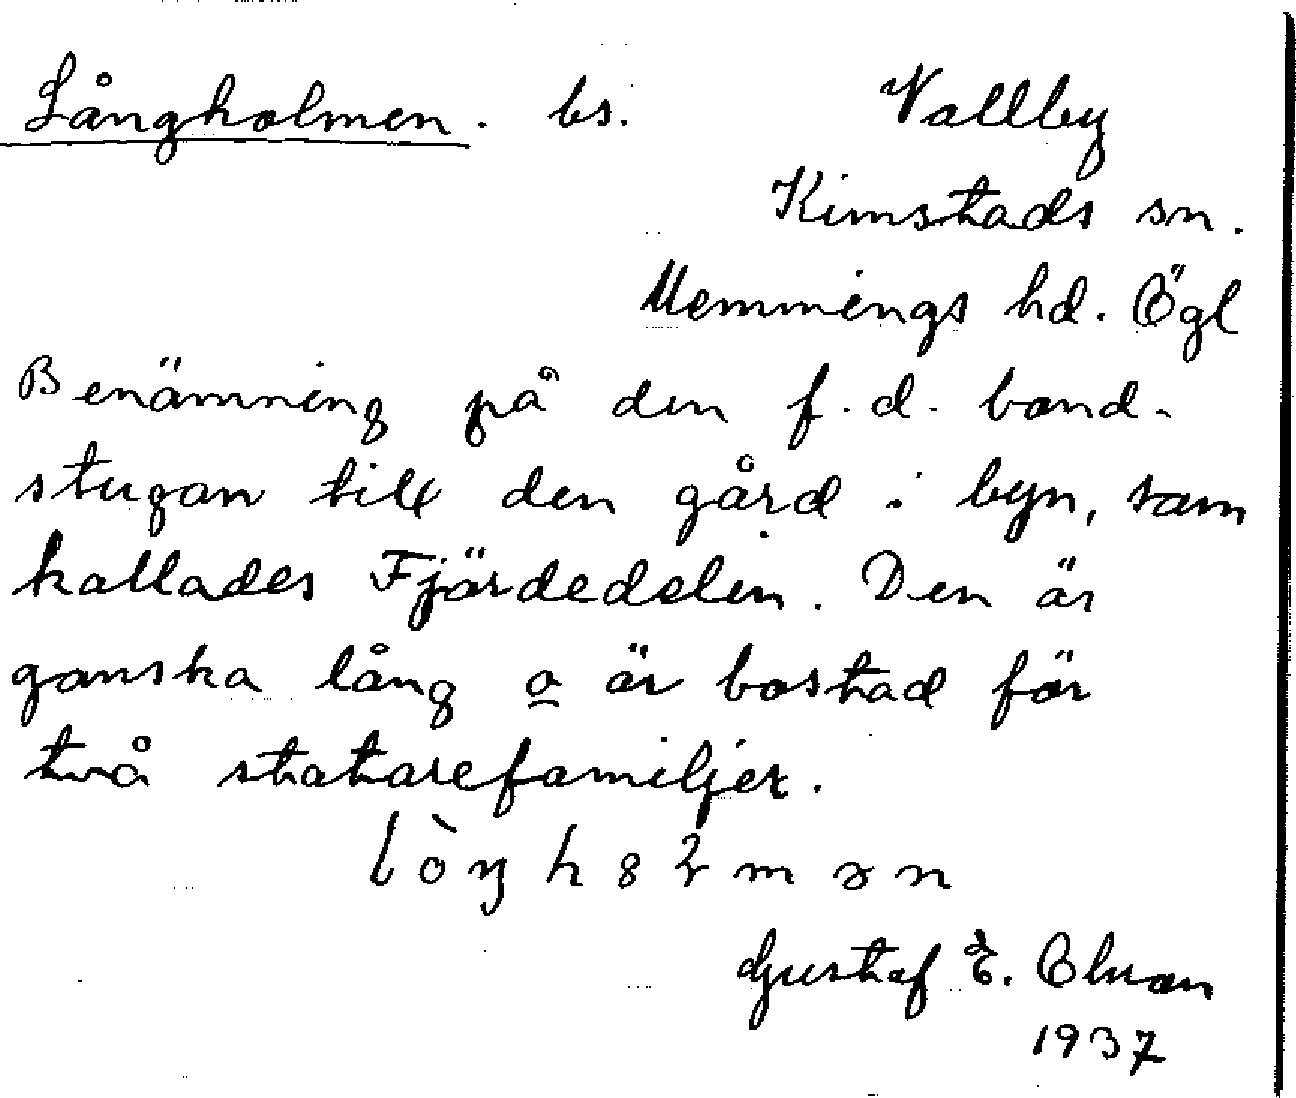 Långholmen. bs. Vallby
Kimstads sn.
Memmings hd. Ögl
Benämning på den f.d. bond-
stugan till den gård i byn, som
kallades Fjärdedelen. Den är
ganska lång o är bostad för
två statarefamiljer.
Gustaf E.
1937